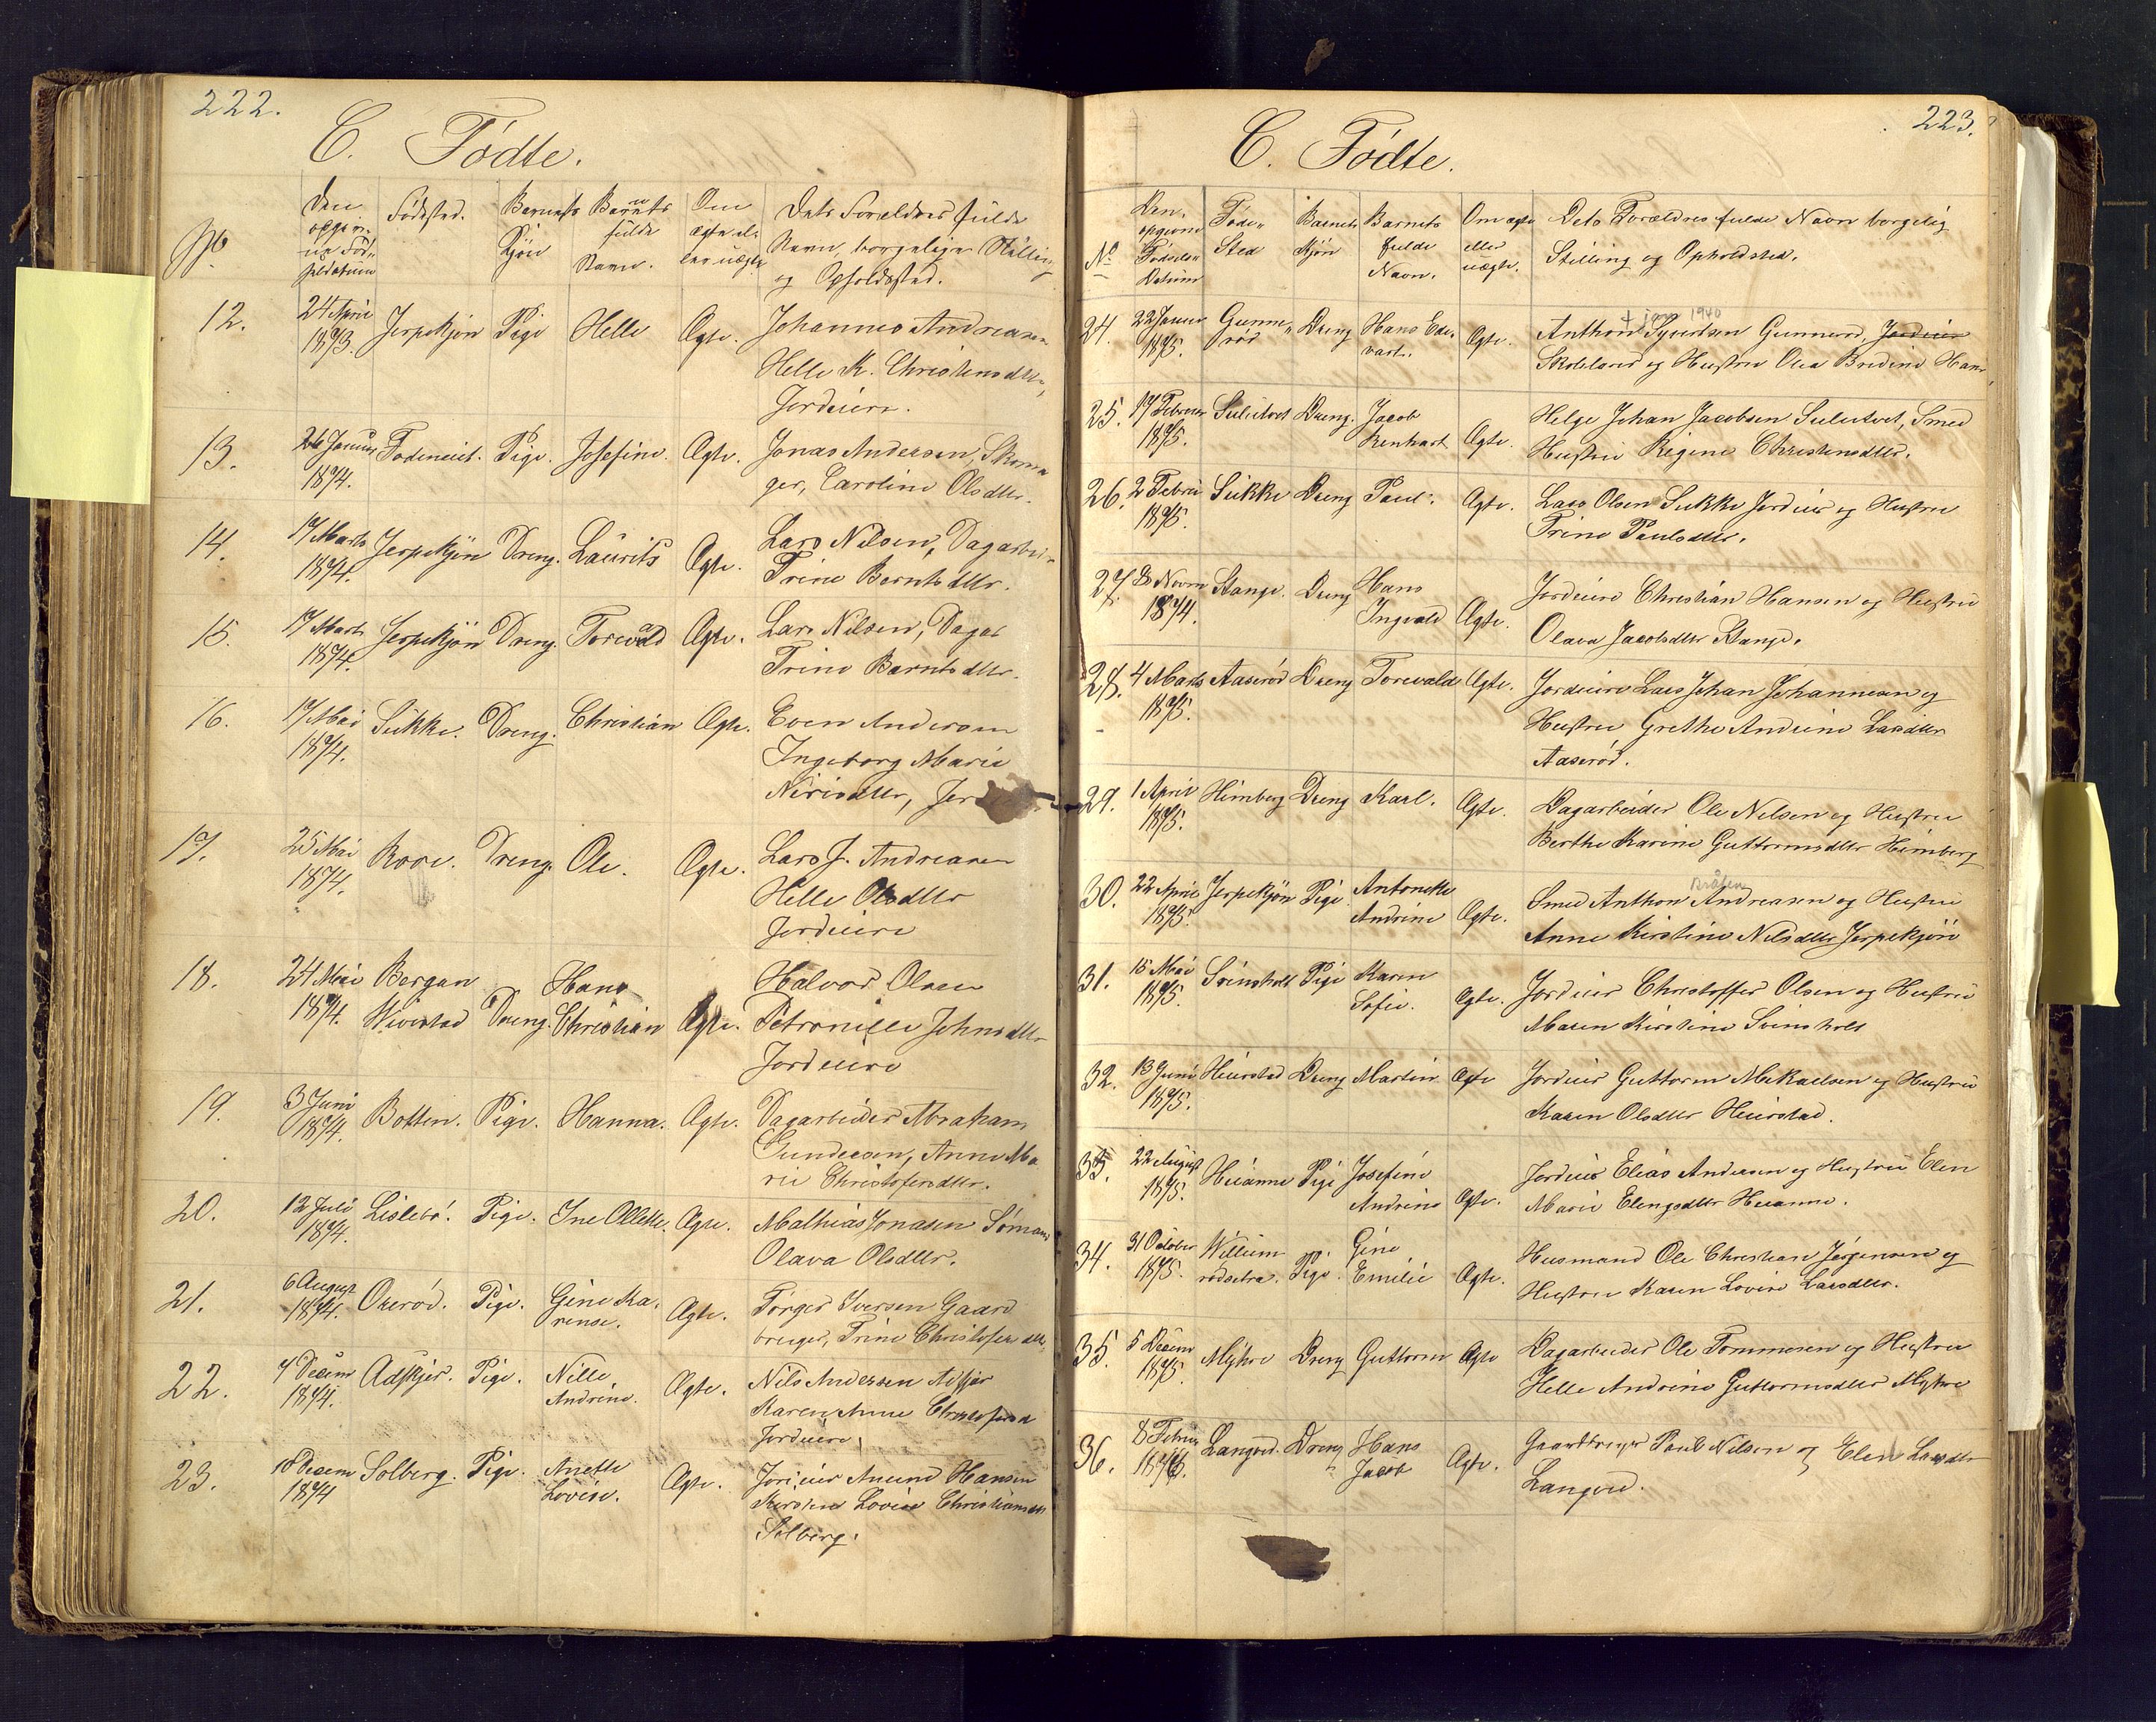 222.
C. Fødte.
No
Den opgivne Fødselsdatum
Fødested.
Barnets Kjøn
Barnets fulde Navn.
Om ægte eller uægte
Dets Forældres fulde
Navn, borgelige Stilling
og Opholdssted.
12. 24 April 1873. Jerpekjøn Pige Helle Ægte. Johannes Andreasen
Helle K. Christensdtr,
Jordeiere.
13. 26 Januar 1874. Pige. Josefine. Ægte. Jonas Andersen, Skoma
ger, Caroline Olsdtr.
14. 17 Marts 1874. Jerpekjøn Dreng. Laurits Ægte. Lars Nilsen, Dagarbei
Trine Berntsdtr.
15. 17 Marts 1874. Jerpekjøn Dreng. Torvald Ægte. Lars Nilsen, Dagar
Trine Barntsdtr.
16. 17 Mai 1874. Sukke. Dreng. Christian Ægte. Even Andersen
Ingeborg Marie
17. 25 Mai 1874. Rove. Dreng. Ole. Ægte. Lars J. Andreasen
Helle Olsdtr
Jordeiere
18. 24 Mai 1874. Bergan Wivestad Dreng. Hans Christian Ægte. Halvor Olsen
Petronille Johnsdtr
Jordeiere
19. 3 Juni 1874. Botten. Pige. Hanna. Ægte. Dagarbeider Abraham
Gundersen, Anne Ma
rie Christofersdtr.
20. 12 Juli 1874. Lislebö. Pige. Ine Ollette. Ægte. Mathias Jonasen Sömand
Olava Olsdtr.
21. 6 August 1874. Oserød. Pige. Gine Ka, rense. Ægte. Törger Iversen Gaard
bruger, Trine Christofersdtr.
22. 7 Decem 1874. Adskjer. Pige. Nille Andrine. Ægte. Nils Andersen
Karen Anne Christofersd
Jordeiere.
23. 18 Decem 1874 Solberg. Pige. Anette Lovise. Ægte. Jordeier Amund Hansen
Kirsten Lovise Christiansdtr
Solberg.
223.
C. Fødte.
No
Den opgivne Fødsels Datum
Føde Sted
Barnets Kjøn
Barnets fulde Navn.
Om ægte eller uægte.
Dets Forældres fulde Navn borgelig
Stilling og Opholdsted.
† jan 1940
24. 22 Januar 1875. Gunnerød Dreng Hans Edevart. Ægte. Anthon Syvertsen Gunnerød, Jordeier
Skolelærer og Hustru Olea Bredine Hans,
25. 17 Februar 1875. Sulutvet Dreng. Jacob Renhart Ægte. Helge Johan Jacobsen Sulutvet, Smed
Hustru Regine Christensdtr.
26. 2 Febru 1875. Sukke Dreng Paul. Ægte. Lars Olsen Sukke Jordeier og Hustru
Trine Paulsdtr.
27. 8 Novm 1874. Stange. Dreng Hans Ingvald Ægte. Jordeiere Christian Hansen og Hustru
Olava Jacobsdtr Stange.
28. 4 Marts 1875. Aaserød Dreng Torevald Ægte. Jordeiere Lars Johan Johannesen og
Hustru Grethe Andrine Larsdtr
Aaserød.
29. 1 April 1875. Himberg Dreng Karl. Ægte. Dagarbeider Ole Nilsen og Hustru
Berthe Karine Guttormsdtr Himberg
Bråten
30. 22 April 1875. Jerpekjøn Pige Antonette Andrine Ægte. Smed Anthon Andreasen og Hustru
Anne Kirstine Nilsdtr Jerpekjøn
31. 15 Mai 1875. Svinsholt Pige Karen Sofie. Ægte. Jordeier Christoffer Olsen og Hustru
Maren Kirstine Svinsholt
32. 13 Juni 1875. Heierstad Dreng Martin Ægte Jordeier Guttorm Mikaelsen og Hustru
Karen Olsdtr Heierstad.
33. 22 August 1875. Heianne Pige Josefine Andrine Ægte. Jordeier Elias Andersen og Hustru Elen
Marie Elingsdtr Heianne.
34. 31 October 1875. Willumrødsetra. Pige. Gine Emilie Ægte. Husmand Ole Christian Jørgensen og
Hustru Karen Lovise Larsdtr.
35. 5 Decem 1875. Myhre Dreng Guttorm Ægte Dagarbeider Ole Tommesen og Hustru
Helle Andrine Guttormsdtr Myhre
36. 8 Februar 1876. Langved. Dreng Hans Jacob Ægte. Gaardbruger Paul Nilsen og Elen Larsdtr
Langved.